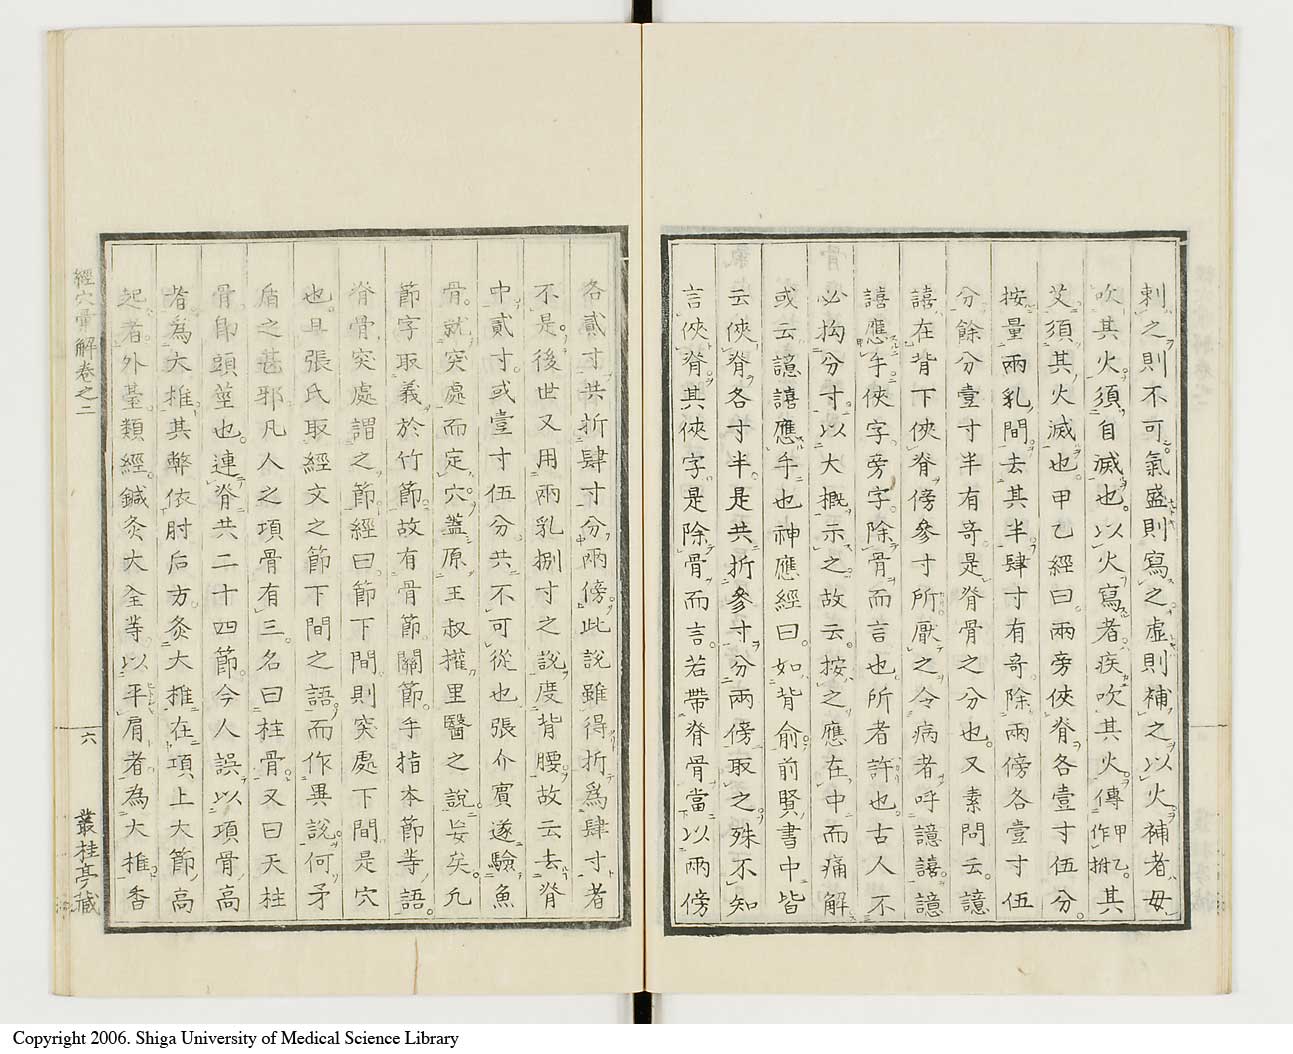 刺之則不可氣盛則寫之虛則補之以火補者毋
吹其火須自滅也以火寫者疾吹其火傳作甲乙拊其
艾須其火滅也甲乙經曰兩旁俠脊各壹寸伍分
按量兩乳間去其半肆寸有奇除兩傍各壹寸伍
分餘分壹寸半有奇是脊骨之分也又素問云譩
譆在背下俠脊傍參寸所厭之令病者呼譩譆譩
譆應手俠字旁字除骨而言也所者許也古人不
必拘分寸以大概示之故云按之應在中而痛解
或云譩譆應手也神應經曰如背俞前賢書中皆
云俠脊各寸半是共折參寸分兩傍取之殊不知
言俠脊其俠字是除骨而言若帶脊骨當以兩傍
各貳寸共折肆寸分兩傍此說雖得折爲肆寸者
不是後世又用兩乳捌寸之說度背腰故云去脊
中貳寸或壹寸伍分共不可從也張介賓遂驗魚
骨就突處而定穴蓋原王叔權里醫之說妄矣凢
節字取義於竹節故有骨節關節手指本節等語
脊骨突處謂之節經曰節下間則突處下間是穴
也且張氏取經文之節下間之語而作異說何矛
盾之甚邪凡人之項骨有三名曰柱骨又曰天柱
骨卽頭莖也連脊共二十四節今人誤以項骨高
者爲大椎其弊依肘后方灸大椎在項上大節高
起者外臺類經鍼灸大全等以平肩者為大椎香
經穴彙解卷之二
六
叢桂亭藏
Copyright 2006. Shiga University of Medical Science Library